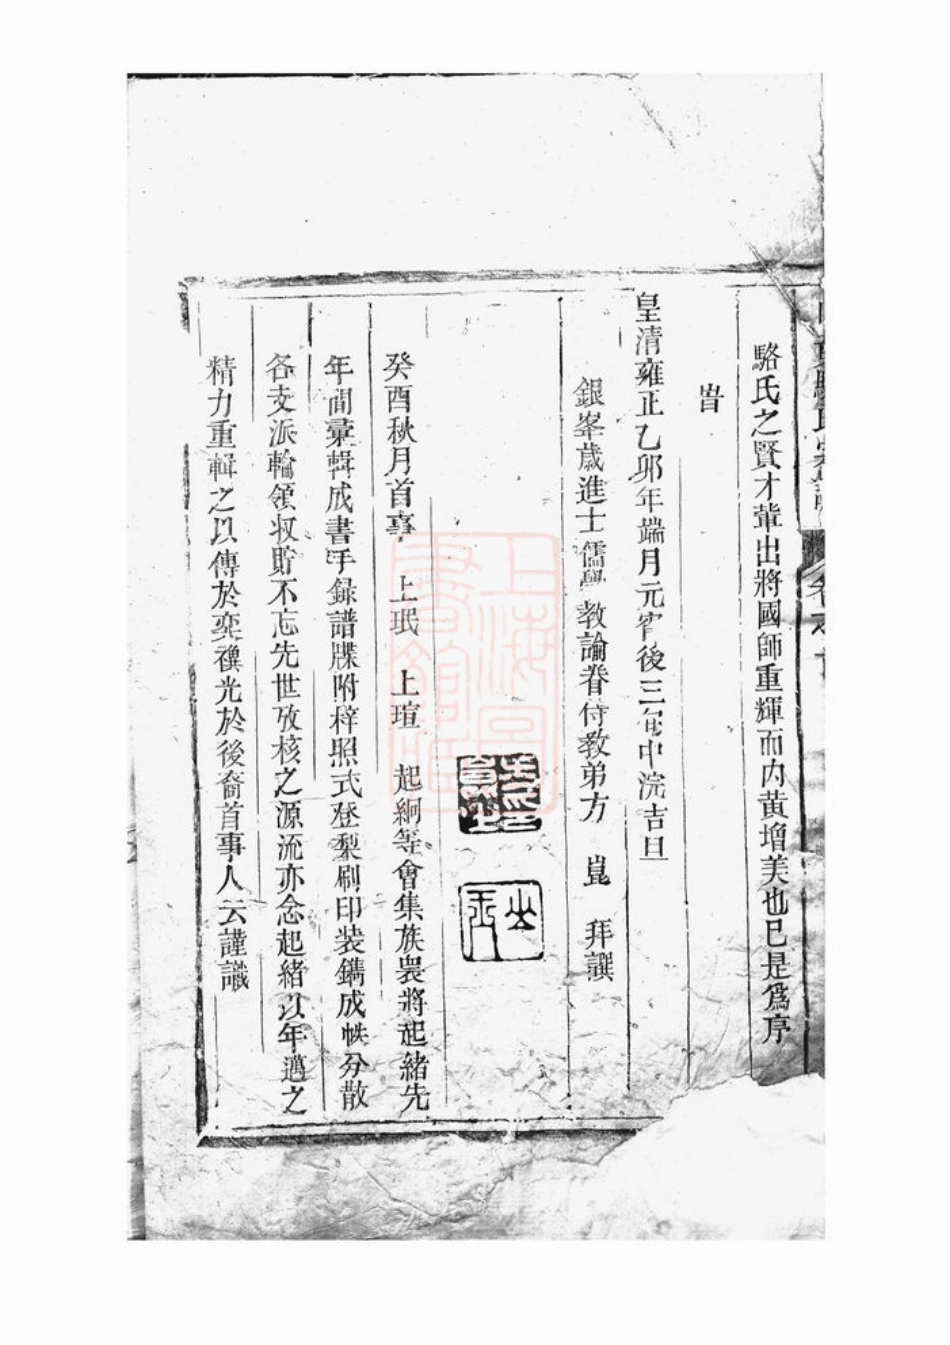 駱氏之賢才軰出將國師重輝而内黄增美也已是爲序
旹
皇清雍正乙卯年端月元宵後三旬中浣吉旦
銀峯歲進士儒學教諭眷侍教弟方 崑 拜譔
癸酉秋月首事 上珉 上瑄 起絅等會集族衆將起緒先
年間彙輯成書手録譜牒附梓照式登梨刷印装鐫成帙分散
各支派輪領收貯不忘先世攷核之源流亦念起緒以年邁之
精力重輯之以傳於奕禩光於後裔首事人云謹識
上海圖書館藏